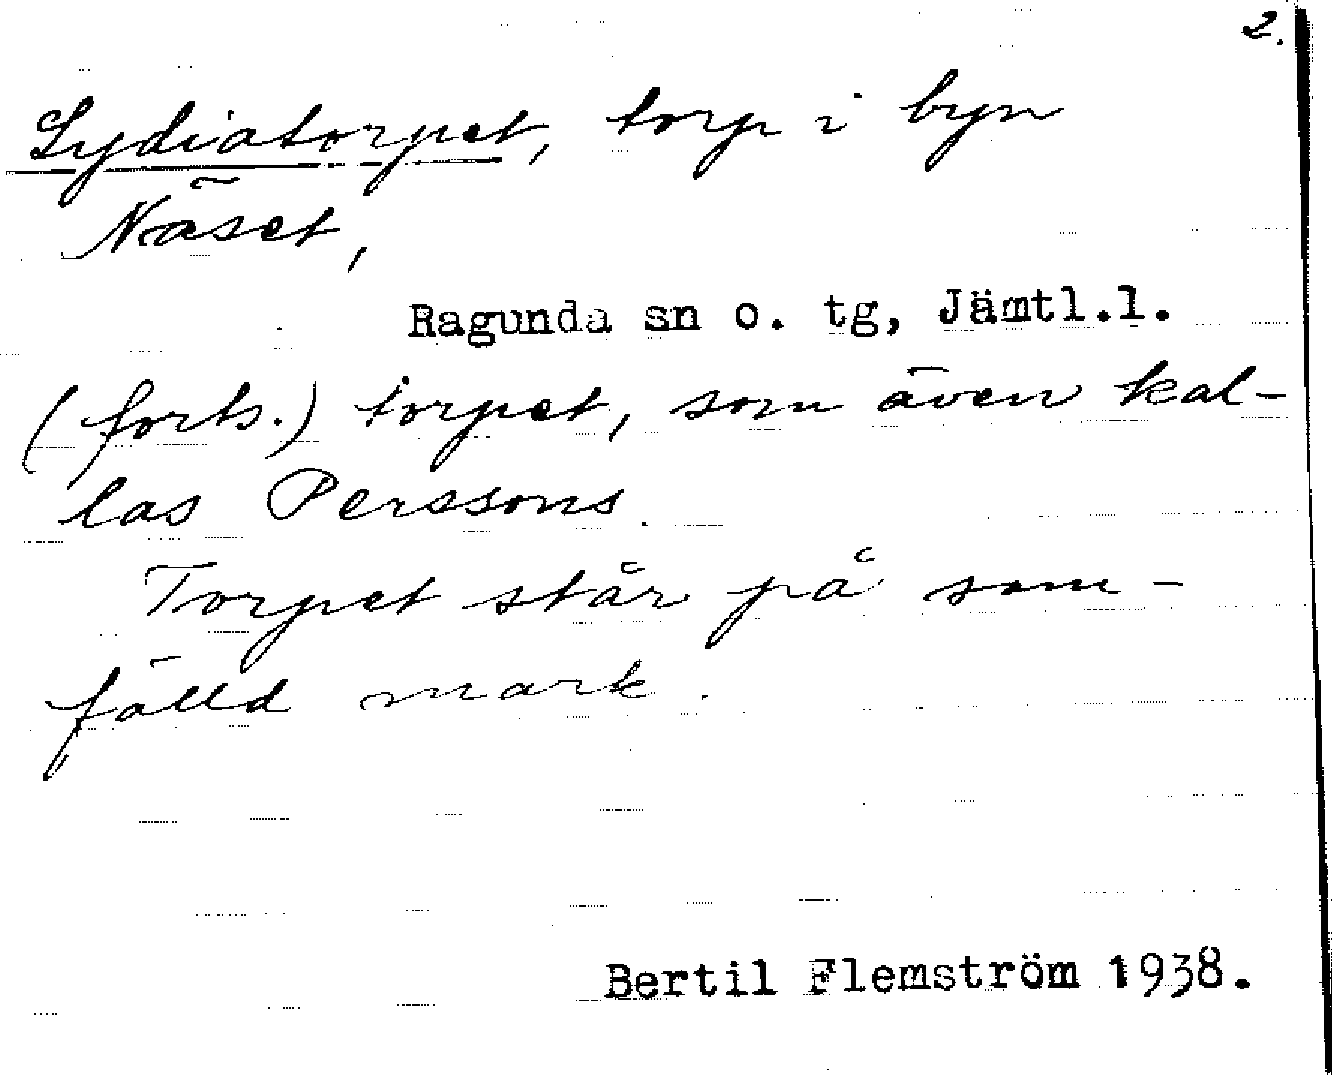 2.
Lydiatorpet, torp i byn
Näset,
Ragunda sn o. tg, Jämtl.l.
(forts.) torpet, som även kal-
las Perssons.
Torpet står på sam-
fälld mark.
Bertil Flemström 1938.